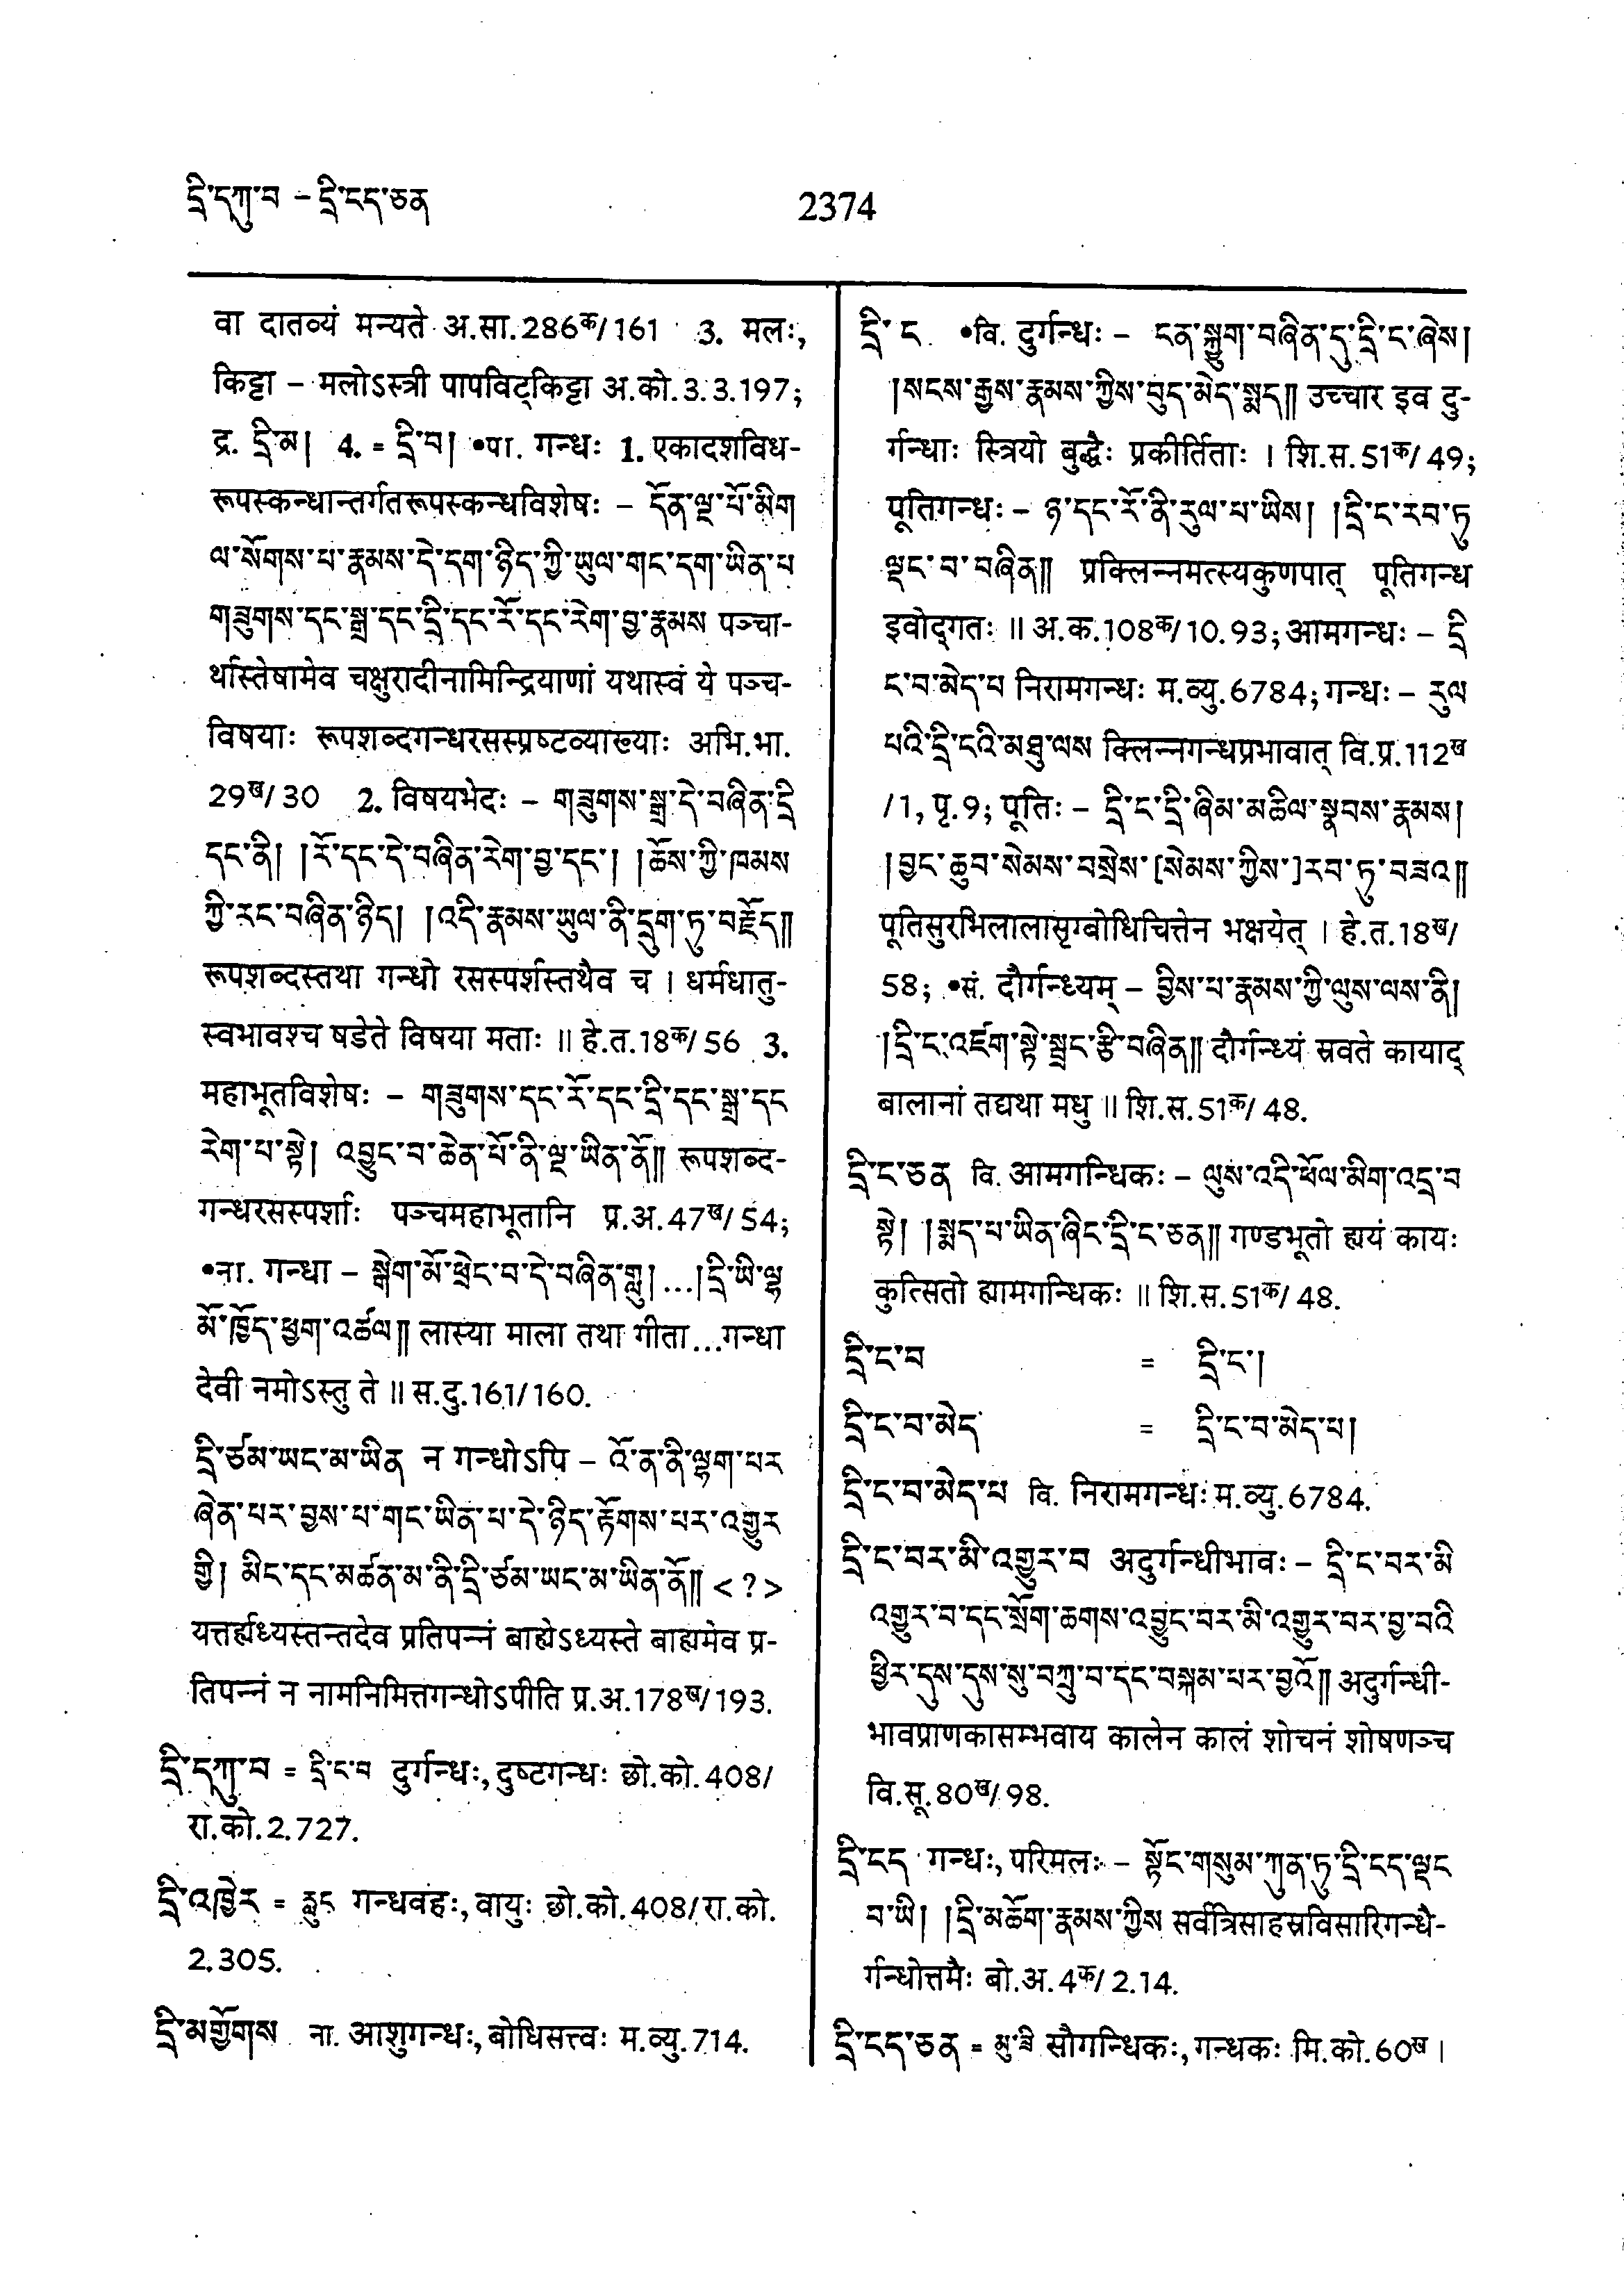 དྲི་དཀུ་བ – དྲི་ངད་ཅན
2374
वा दातव्यं मन्यते अ.सा.286क/161 3. मलः,
किट्टा – मलोऽस्त्री पापविट्किट्टा अ.को.3.3.197;
द्र. དྲི་མ། 4. = དྲི་བ། •पा. गन्धः 1. एकादशविध-
रूपस्कन्धान्तर्गतरूपस्कन्धविशेषः – དོན་ལྔ་པོ་མིག
ལ་སོགས་པ་རྣམས་དེ་དག་ཉིད་ཀྱི་ཡུལ་གང་དག་ཡིན་པ
གཟུགས་དང་སྒྲ་དང་དྲི་དང་རོ་དང་རེག་བྱ་རྣམས पञ्चा-
र्थास्तेषामेव चक्षुरादीनामिन्द्रियाणां यथास्वं ये पञ्च-
विषयाः रूपशब्दगन्धरसस्प्रष्टव्याख्याः अभि.भा.
29ख/30 2. विषयभेदः – གཟུགས་སྒྲ་དེ་བཞིན་དྲི
དང་ནི། །རོ་དང་དེ་བཞིན་རེག་བྱ་དང་། །ཆོས་ཀྱི་ཁམས
ཀྱི་རང་བཞིན་ཉིད། །འདི་རྣམས་ཡུལ་ནི་དྲུག་ཏུ་བརྗོད༎
रूपशब्दस्तथा गन्धो रसस्पर्शस्तथैव च । धर्मधातु-
स्वभावश्च षडेते विषया मताः ॥ हे.त.18क/56 3.
महाभूतविशेषः – གཟུགས་དང་རོ་དང་དྲི་དང་སྒྲ་དང
རེག་པ་སྟེ། འབྱུང་བ་ཆེན་པོ་ནི་ལྔ་ཡིན་ནོ༎ रूपशब्द-
गन्धरसस्पर्शाः पञ्चमहाभूतानि प्र.अ.47ख/54;
•ना. गन्धा – སྒེག་མོ་ཕྲེང་བ་དེ་བཞིན་གླུ། ...།དྲི་ཡི་ལྷ
མོ་ཁྱོད་ཕྱག་འཚལ༎ लास्या माला तथा गीता...गन्धा
देवी नमोऽस्तु ते ॥ स.दु.161/160.
དྲི་ཙམ་ཡང་མ་ཡིན न गन्धोऽपि – འོ་ན་ནི་ལྷག་པར
ཞེན་པར་བྱས་པ་གང་ཡིན་པ་དེ་ཉིད་རྟོགས་པར་འགྱུར
གྱི། མིང་དང་མཚན་མ་ནི་དྲི་ཙམ་ཡང་མ་ཡིན་ནོ༎ <?>
यत्तर्ह्यध्यस्तन्तदेव प्रतिपन्नं बाह्येऽध्यस्ते बाह्यमेव प्र-
तिपन्नं न नामनिमित्तगन्धोऽपीति प्र.अ.178ख/193.
དྲི་དཀུ་བ = དྲི་ང་བ दुर्गन्धः, दुष्टगन्धः छो.को.408/
रा.को.2.727.
དྲི་འཁྱེར = རླུང गन्धवहः, वायुः छो.को.408/रा.को.
2.305.
དྲི་མགྱོགས ना. आशुगन्धः, बोधिसत्त्वः म.व्यु.714.
དྲི་ང •वि. दुर्गन्धः – ངན་སྐྱུག་བཞིན་དུ་དྲི་ང་ཞེས།
།སངས་རྒྱས་རྣམས་ཀྱིས་བུད་མེད་སྨད༎ उच्चार इव दु-
र्गन्धाः स्त्रियो बुद्धैः प्रकीर्तिताः । शि.स.51क/49;
पूतिगन्धः – ཉ་དང་རོ་ནི་རུལ་པ་ཡིས། །དྲི་ང་རབ་ཏུ
ལྡང་བ་བཞིན༎ प्रक्लिन्नमत्स्यकुणपात् पूतिगन्ध
इवोद्गतः ॥ अ.क.108क/10.93; आमगन्धः – དྲི
ང་བ་མེད་པ निरामगन्धः म.व्यु.6784; गन्धः – རུལ
པའི་དྲི་ངའི་མཐུ་ལས क्लिन्नगन्धप्रभावात् वि.प्र.112ख
/1, पृ.9; पूतिः – དྲི་ང་དྲི་ཞིམ་མཆིལ་སྣབས་རྣམས།
།བྱང་ཆུབ་སེམས་བསྲེས་[སེམས་ཀྱིས་]རབ་ཏུ་བཟའ༎
पूतिसुरभिलालासृग्बोधिचित्तेन भक्षयेत् । हे.त.18ख/
58; •सं. दौर्गन्ध्यम् – བྱིས་པ་རྣམས་ཀྱི་ལུས་ལས་ནི།
།དྲི་ང་འཛག་སྟེ་སྦྲང་རྩི་བཞིན༎ दौर्गन्ध्यं स्रवते कायाद्
बालानां तद्यथा मधु ॥ शि.स.51क/48.
དྲི་ང་ཅན वि. आमगन्धिकः – ལུས་འདི་ཕོལ་མིག་འདྲ་བ
སྟེ། །སྨད་པ་ཡིན་ཞིང་དྲི་ང་ཅན༎ गण्डभूतो ह्ययं कायः
कुत्सितो ह्यामगन्धिकः ॥ शि.स.51क/48.
དྲི་ང་བ = དྲི་ང་།
དྲི་ང་བ་མེད = དྲི་ང་བ་མེད་པ།
དྲི་ང་བ་མེད་པ वि. निरामगन्धः म.व्यु.6784.
དྲི་ང་བར་མི་འགྱུར་བ अदुर्गन्धीभावः – དྲི་ང་བར་མི
འགྱུར་བ་དང་སྲོག་ཆགས་འབྱུང་བར་མི་འགྱུར་བར་བྱ་བའི
ཕྱིར་དུས་དུས་སུ་བཀྲུ་བ་དང་བསྐམ་པར་བྱའོ༎ अदुर्गन्धी-
भावप्राणकासम्भवाय कालेन कालं शोचनं शोषणञ्च
वि.सू.80ख/98.
དྲི་ངད गन्धः, परिमलः – སྟོང་གསུམ་ཀུན་ཏུ་དྲི་ངད་ལྡང
བ་ཡི། །དྲི་མཆོག་རྣམས་ཀྱིས सर्वत्रिसाहस्रविसारिगन्धै-
र्गन्धोत्तमैः बो.अ.4क/2.14.
དྲི་ངད་ཅན = མུ་ཟི सौगन्धिकः, गन्धकः मि.को.60ख ।